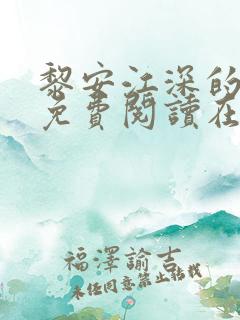 黎安江深的
免費閱讀在
福澤諭吉
未經同意禁止轉載